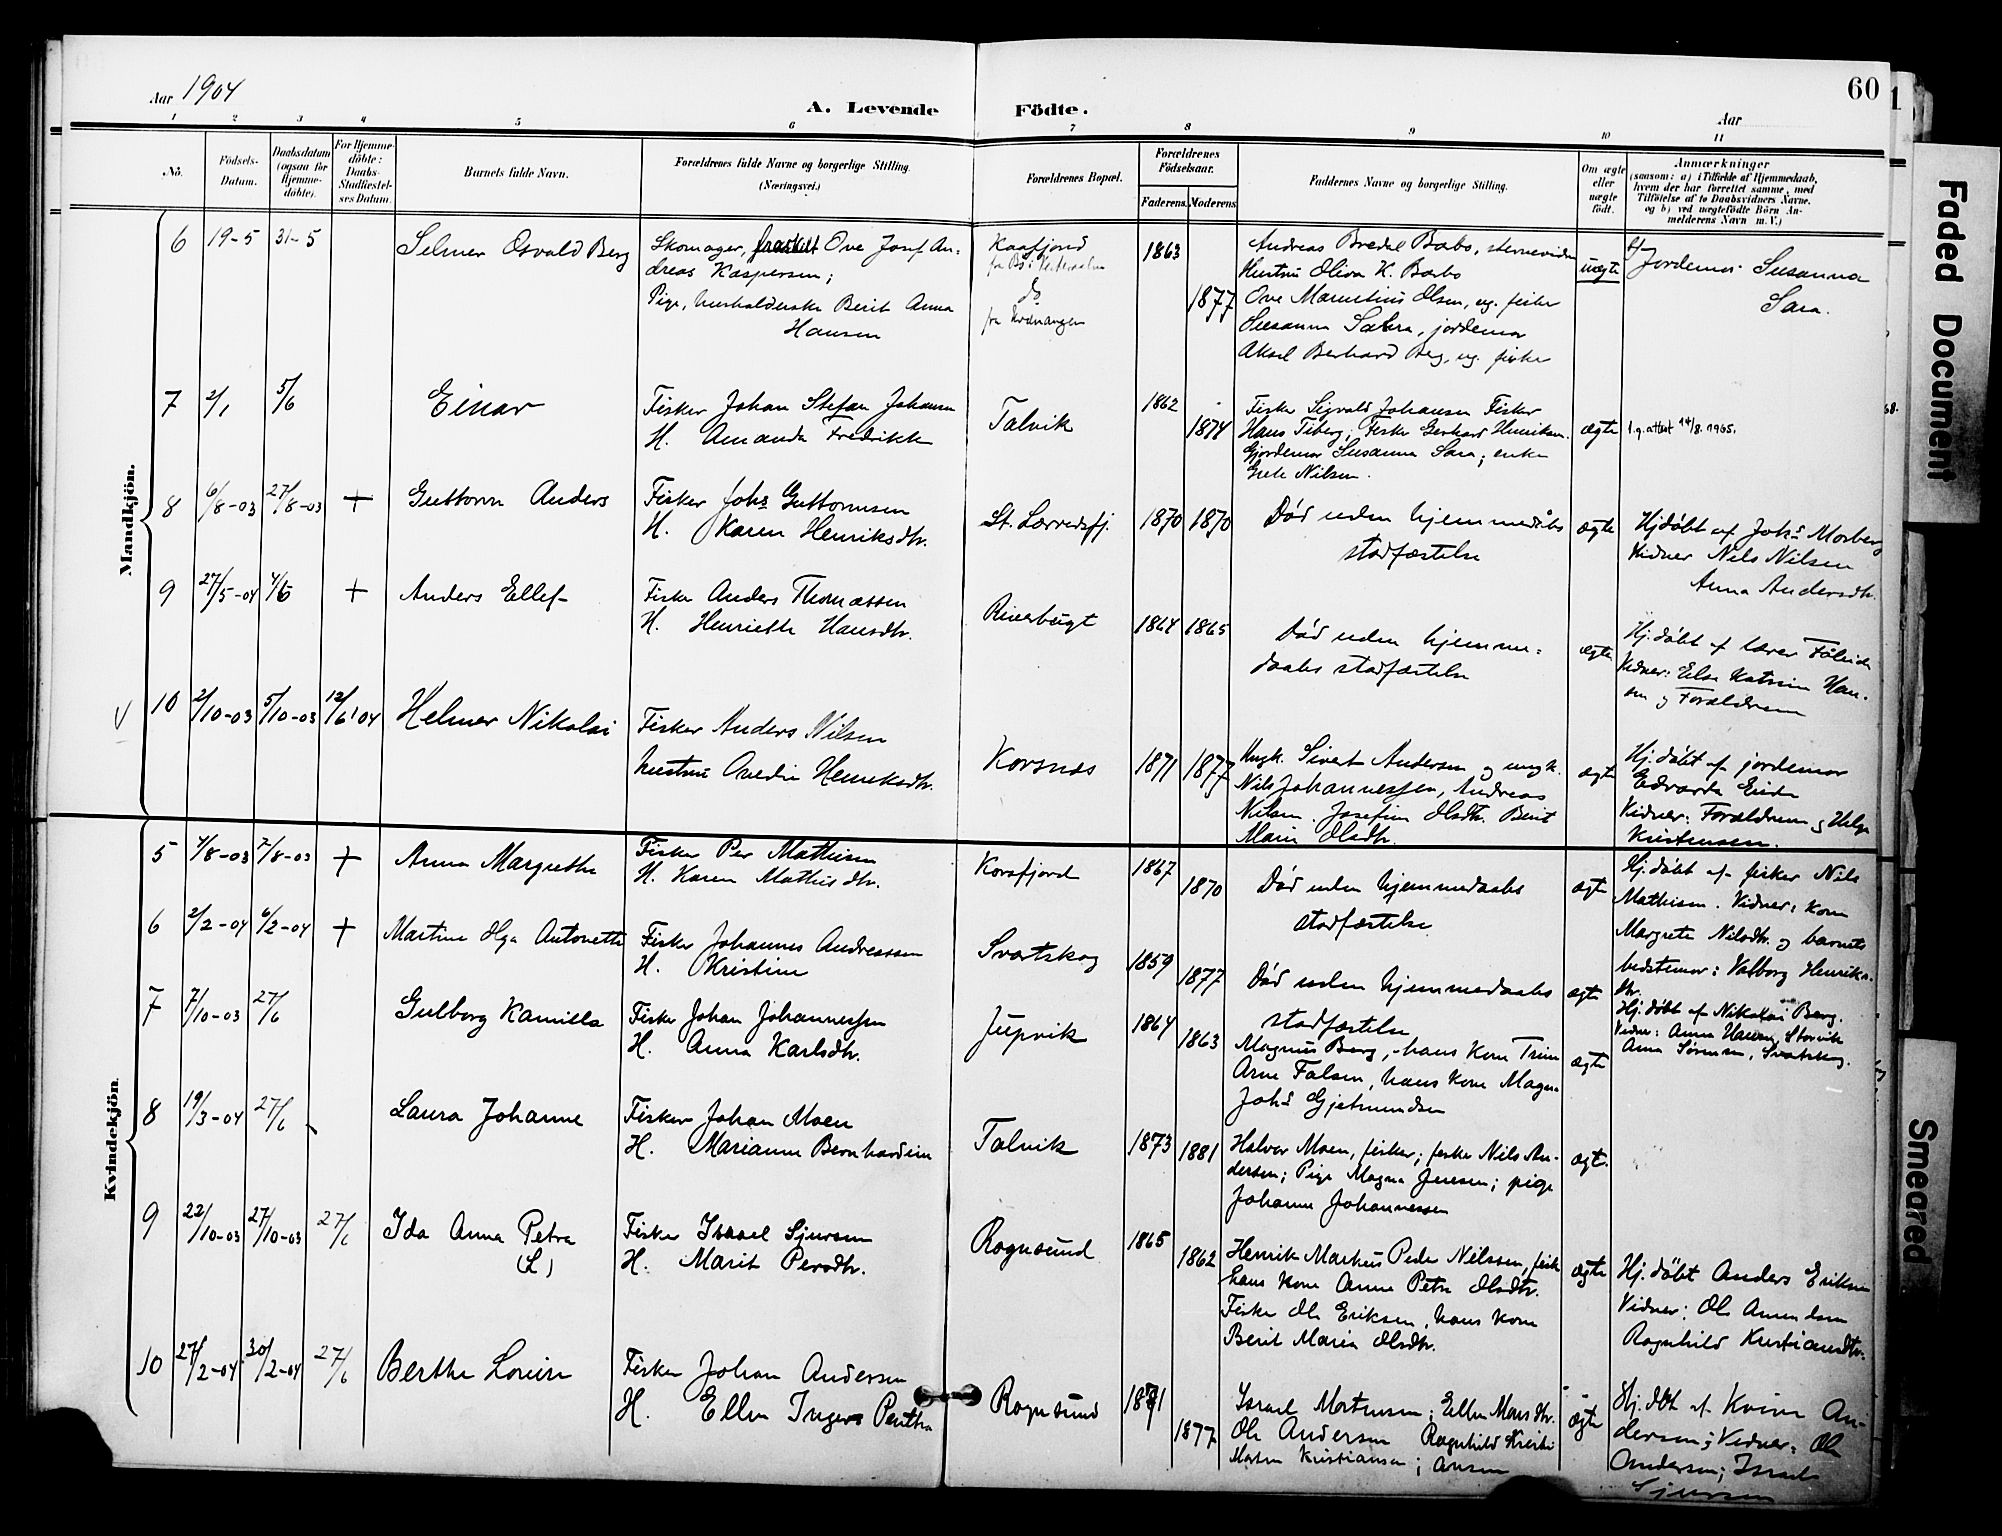 Aar 1904
A. Levende Födte.
Aar
60
1 2 3 4 5 6 7 8 9 10 11
No.
Födsels-
Datum.
Daabsdatum
(ogsaa for
Hjemme-
döbte).
For Hjemme-
döbte:
Daabs-
Stadfæstel-
ses Datum.
Barnets fulde Navn.
Forældrenes fulde Navne og borgerlige Stilling.
(Næringsvei.)
Forældrenes Bopæl.
Forældrenes
Födselsaar.
Faderens. Moderens.
Faddernes Navne og borgerlige Stilling.
Om ægte
eller
uægte
födt.
Anmærkninger
(saasom: a) i Tilfælde af Hjemmedaab,
hvem der har forrettet samme, med
Tilföielse af to Daabsvidners Navne.
og b) ved uægtefödte Börn An-
melderens Navn m. V.)
Mandkjön.
6 19-5 31-5 Selmer Osvald Berg
Skomager, fraskilt Ove Josef An-
dreas Kaspersen;
Pige, husholderske Berit Anna
Hansen
Kaafjord
do
fra Kvænangen
1863
1877
Andreas Bredal Barbo,
Hustru Oliva K. Barbo
Ove Marentius Olsen, ug. fisker
Susanna Sara, jordemor
Aksel Berhard Berg, ug. fisker
uægte
b/ Jordemor Susanna
Sara.
7 2/1 5/6 Einar
Fisker Johan Stefan Johansen
H. Amanda Fredrikke
Talvik
1862
1874
Fisker Sigvald Johansen Fisker
Hans Tiberg, Fisker Gerhard Henriksen.
Gjordemor Susanna Sara; enke
Grete Nilsen.
ægte
l.g. attest 14/8. 1965.
8 6/8-03 27/8-03 + Guttorm Anders
Fisker Johs Guttormsen
H. Karen Henriksdtr.
St. Lerredsfj.
1870 1870
Død uden hjemmedåbs
stadfæstelse
ægte
Hjdøbt af Johs Mosberg
Vidner Nils Nilsen
Anna Andersdtr.
9 27/5-04 4/6 + Anders Ellef
Fisker Anders Thomassen
H. Henriette Hansdtr.
Riverbugt
1864 1865
Død uden hjemme-
daabs stadfæstelse
ægte
Hj.døbt af lærer
Vidner: Else Katrine Han-
sen og Forældrene
10 2/10-03 5/10-03 12/6 '04 Helmer Nikolai
Fisker Anders Nilsen
hustru Ovedie Henriksdtr.
Korsnes
1871 1877
Ungk. Sivert Andersen og ungk.
Nils Johannessen, Andreas
Nilsen. Josefine Olsdtr. Berit
Marie Olsdtr.
ægte
Hj.døbt af jordemor
Edvarda
Vidner: Forældrene og Helga
Kristensen.
Kvindekjön.
5 4/8-03 7/8-03 + Anna Margrethe
Fisker Per Mathisen
H. Karen Mathisdtr.
Korsfjord
1867
1870
Død uden hjemmedaabs
stadfæstelse
ægte
Hj.døbt af fisker Nils
Mathisen. Vidner: kone
Margrete Nilsdtr. og barnets
bedstemor: Valborg Henriks-
dtr.
6 2/2-04 6/2-04 + Martine Olga Antonette
Fisker Johannes Andreassen
H. Kristine
Svartskog
1859
1877
Død uden hjemmedaabs
stadfæstelse
ægte
Hj.døbt af Nikolai Berg.
Vidner: Anna Hansen, Storvik
Anna Sørensen, Svartskog.
7 7/10-03 27/6 Gulborg Kamilla
Fisker Johan Johannessen
H. Anna Karlsdtr.
Jupvik
1864
1863
Magnus Berg, hans kone Trine
Arne Falsen, hans kone Magna
Johs Gjetmundsen
ægte
8 19/3-04 27/6 Laura Johanne
Fisker Johan Moen
H. Marianne Bernhardine
Talvik
1873
1881
Halvor Moen, fisker; fisker Nils An-
dersen; Pige Magna Jensen; pige
Johanne Johannessen
ægte.
9 22/10-03 27/10-03 27/6 Ida Anna Petra
(L)
Fisker Israel Sjursen
H. Marit Persdtr.
Rognsund
1865
1862
Henrik Markus Peder Nilssen, fisk
hans kone Anne Petra Olsdtr.
Fisker Ole Eriksen, hans kone
Berit Maria Olsdtr.
ægte
Hj.døbt Anders Eriksen
Vidner: Ole Amundsen
Ragnhild Kristiansdtr.
10 27/2-04 30/2-04 27/6 Berthe Lovise
Fisker Johan Andersen
H. Ellen Inger
Rognsund
1871
1877
Israel Mortensen; Ellen Monsdtr.
Ole Andersen Ragnhild Kristi-
Morten Kristiansen; ansen
ægte
Hj.døbt af Kvine An-
dersen; Vidner: Ole
Andersen; Israel
Sjursen
Faded Document
Smeared